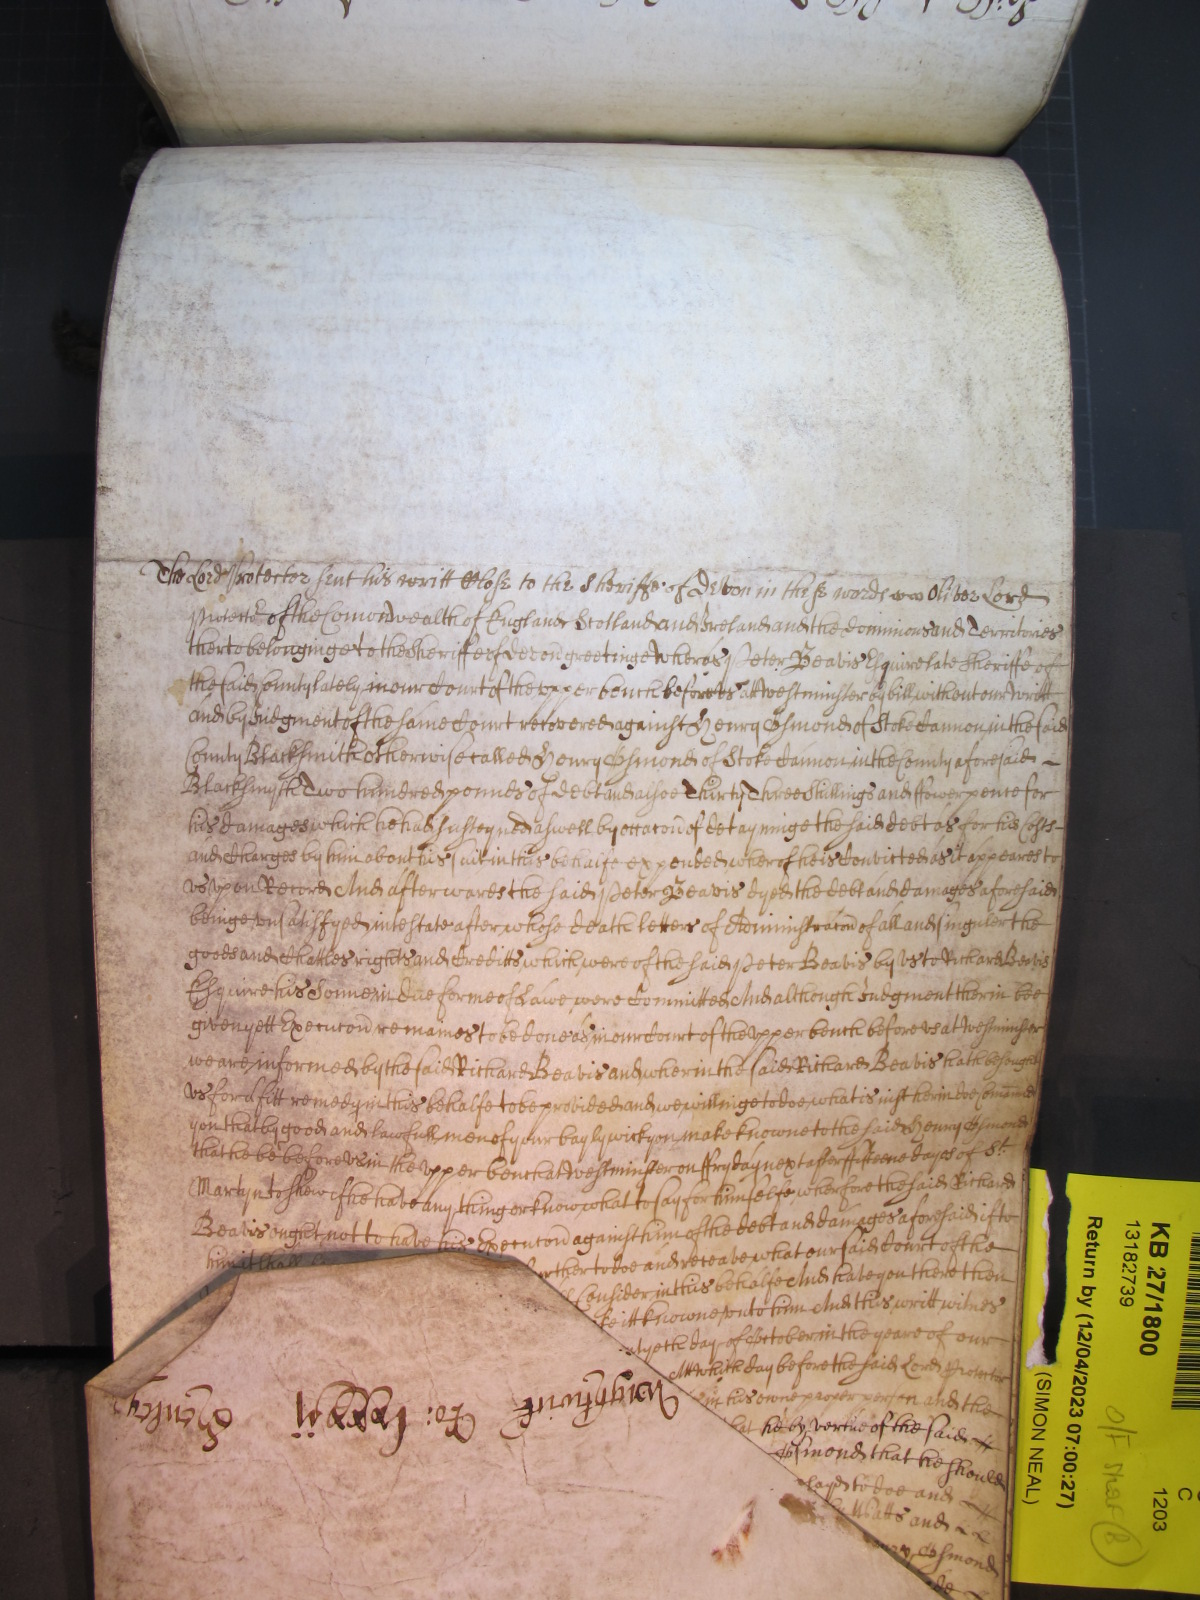 The Lord Protector sent his writt Close to the Sheriffe of Devon in these words Oliver Lord
Protector of the Comonwealth of England Scotland and Ireland and the dominions and Territories
therto belonginge to the Sheriffe of devon greetinge Wheras Peter Beavis Esquire late Sheriffe of
the said County lately in our Court of the upper bench before us att Westminster by bill without our Writt
and by Judgment of the same Court recovered against Henry Osmond of Stoke Cannon in the said
County Blacksmith otherwise called Henry Osmond of Stoke Cannon in the County aforesaid
Blacksmyth Two hundred pounds of debt and alsoe Thirty Three Shillings and ffower pence for
his damages which he had susteyned aswell by occacon of detayninge the said debt as for his Costs
and Charges by him about his suit in this behalfe expended wherof he is Convicted as it appeares to
us upon Record And afterwards the said Peter Beavis dyed the debt and damages aforesaid
beinge unsatisfyed intestate after whose death letters of Administracon of all and singuler the
goods and Chattles rights and Creditts which were of the said Peter Beavis by us to Richard Beavis
Esquire his Sonne in due forme of Lawe were Committed And although Judgment therin bee
given yett Execucon remaines to be done as in our Court of the upper bench before us at Westminster
we are informed by the said Richard Beavis and wherin the said Richard Beavis hath besought
us for a fitt remedy in this behalfe to be provided and we willinge to doe what is just therin doe Comand
you that by good and lawfull men of your baylywick you make knowne to the said Henry Osmond
that he be before us in the upper bench at Westminster on ffryday next after ffifteene dayes of St.
Martyn to shew if he have any thing or know what to say for himselfe wherfore the said Richard
Beavis ought not to have his Execucon against him of the debt and damages aforesaid if to
him it shall further to doe and receave what our said Court of the
Consider in this behalfe And have you there then
itt knowne unto him And this writt witnes
day of October in the yeare of our
Att which day before the said Lord Protector
in his owne proper person and the
that he by vertue of the said
Osmond that he should
to doe and
Watts and
Osmond
be
Wayghtwick Ro: lxxxj Henley
KB 27/1800
13182739
Return by (12/04/2023 07:00:27)
(SIMON NEAL)
C
1203